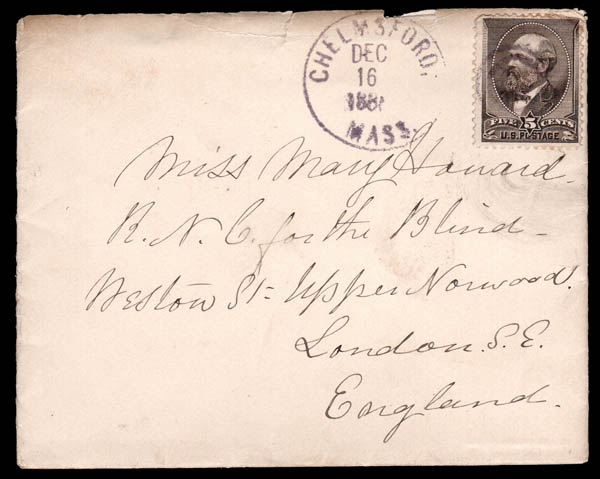 CHELMSFORD,
DEC
16
MASS.
FIVE 5 CENTS
U.S. POSTAGE
Miss Mary Howard.
R. N. C. for the Blind -
Weston St- Upper Norwood.
London. S. E.
England.